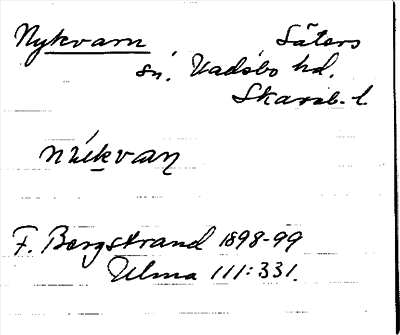 Nykvarn Säters
sn. Vadsbo hd.
Skarab. l.
nýkvaɳ
F. Bergstrand 1898-99
Ulma 111:331.